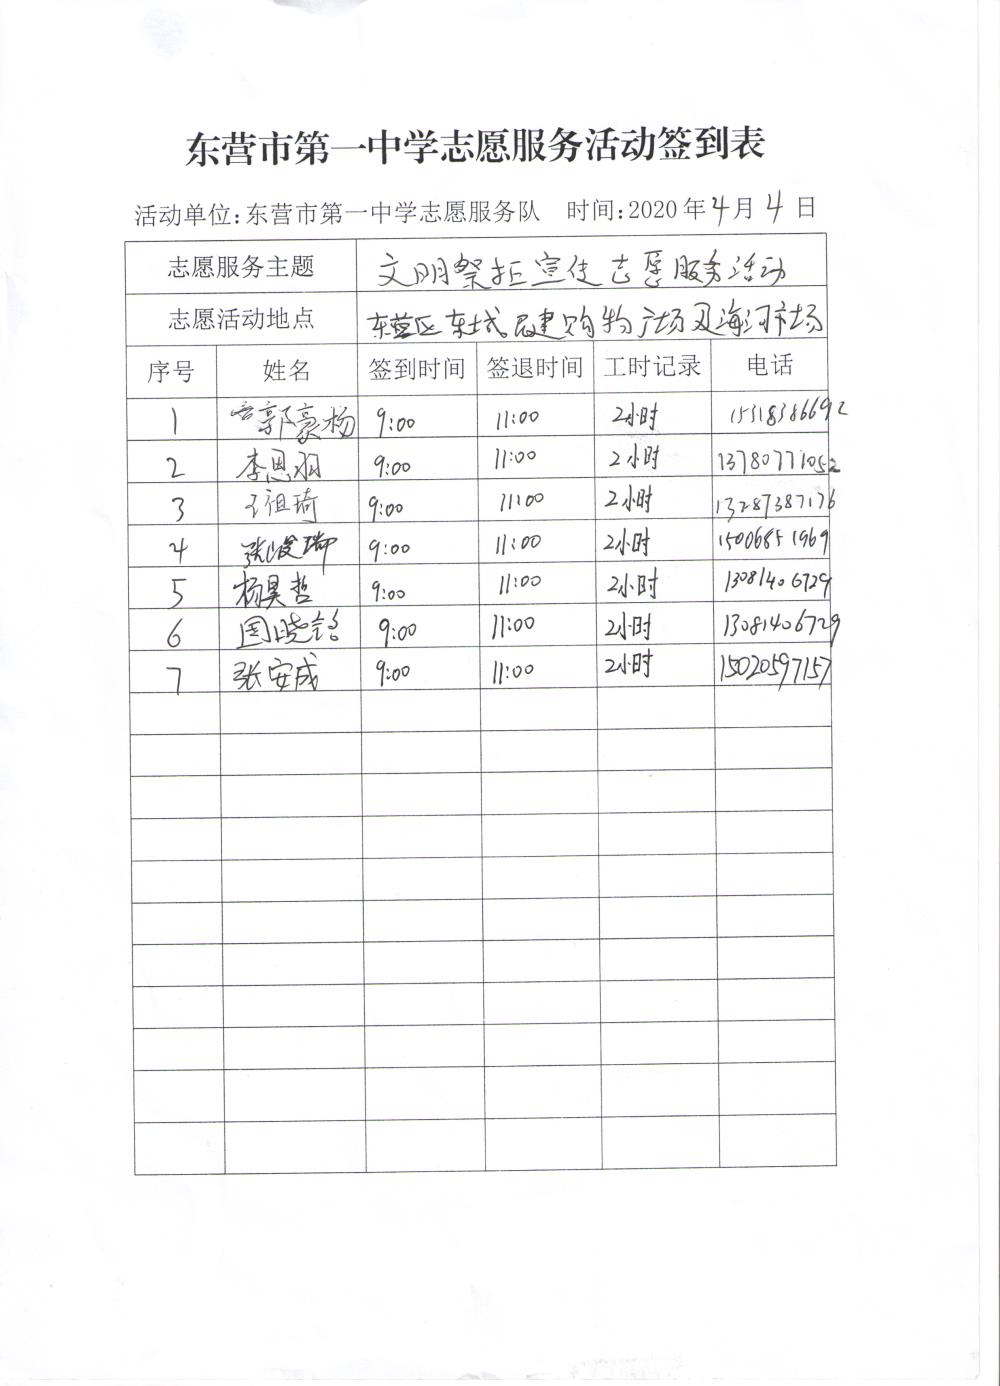 东营市第一中学志愿服务活动签到表
活动单位:东营市第一中学志愿服务队 时间:2020年4月4日
志愿服务主题 文明祭扫宣传志愿服务活动
志愿活动地点 东营区东城居建购物广场及海河市场
序号 姓名 签到时间 签退时间 工时记录 电话
1 郭豪杨 9:00 11:00 2小时 15318386692
2 李恩羽 9:00 11:00 2小时 13780771052
3 王祖琦 9:00 11:00 2小时 13287387176
4 张俊瑞 9:00 11:00 2小时 15006851969
5 杨昊哲 9:00 11:00 2小时 13081406729
6 周晓铭 9:00 11:00 2小时 13081406729
7 张安成 9:00 11:00 2小时 15020597157